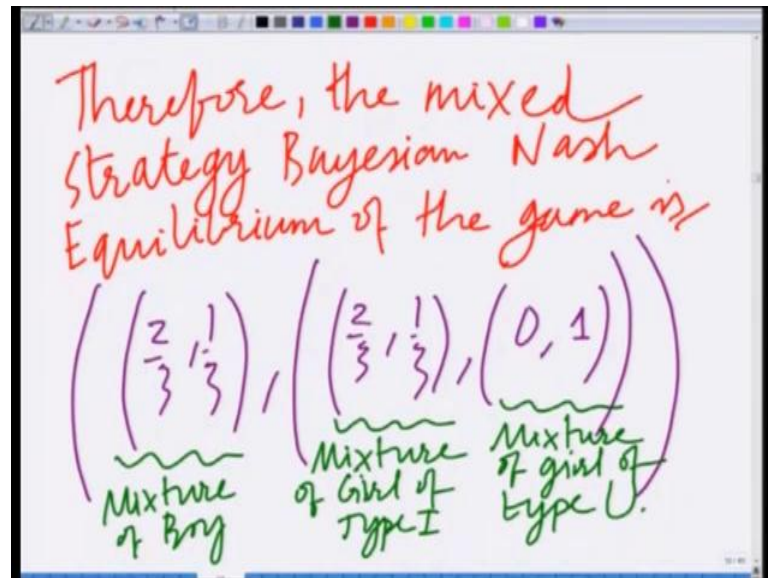 Therefore, the mixed
Strategy Bayesian Nash
Equilibrium of the game is
((2/3, 1/3), ((2/3, 1/3), (0, 1)))
Mixture of Boy
Mixture of Girl of Type I
Mixture of girl of type U.